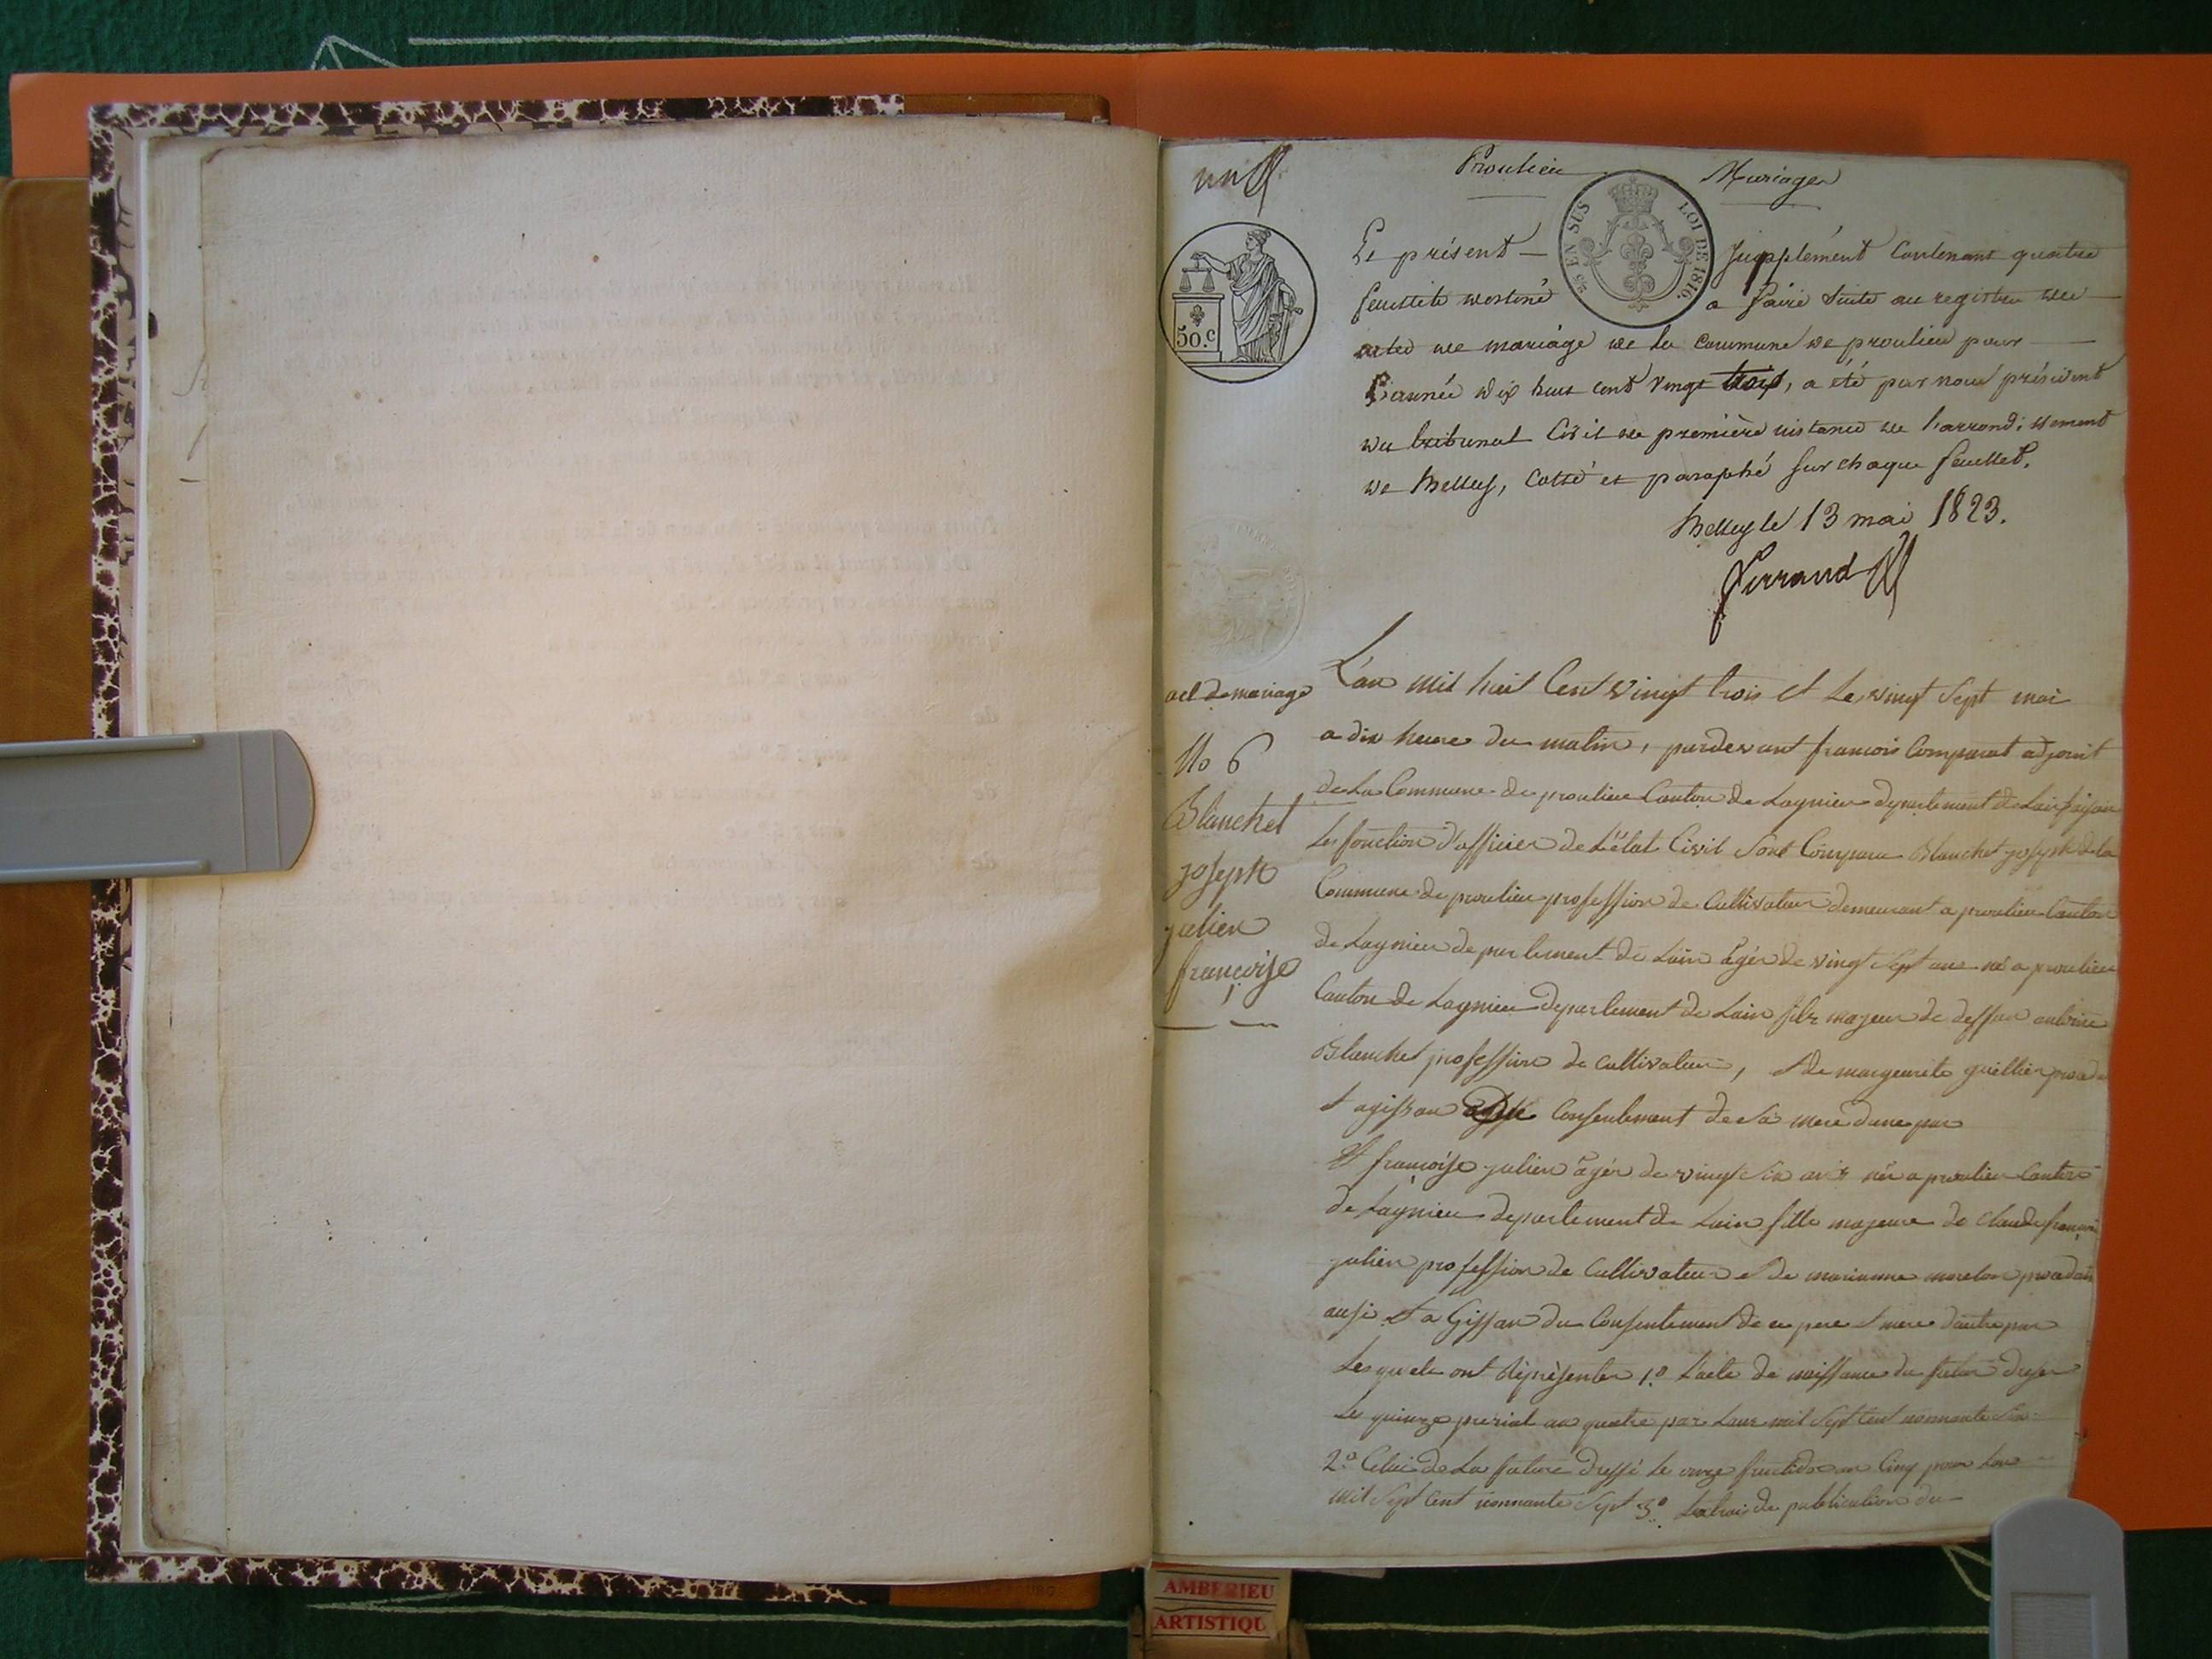 un
Proulieu Mariages
25 EN SUS LOI DE 1816.
50.c
Le présent supplément contenant quatre
feuillets destiné a faire suite au registre des
actes de mariage de la commune de proulieu pour
l'année dix huit cent vingt trois, a été par nous président
du tribunal civil de première instance de l'arrondissement
de Belley, cotté et paraphé sur chaque feuillet.
Belley le 13 mai 1823.
Ferrand
act de mariage
No 6
Blanchet
joseph
julien
françoise
L'an mil huit Cent vingt trois et Le vingt Sept mai
a dix heure du matin, pardevant francois Comparat adjoint
de La Commune de proulieu Canton de Lagnieu departement de Lain faisan
Les fonction d'officier de L'état Civil Sont Comparu Blanchet joseph de la
Commune de proulieu profession de Cultivateur demeurant a proulieu Canton
de Lagnieu departement de Lain agér de vingt Sept ans né a proulieu
Canton de Lagnieu departement de Lain fils majeur de deffun
Blanchet profession de Cultivateur, et de marguerite guillier
et agissan Consentement de Sa mere dune par
Et françoise julien agér de vingt Six ans née a proulieu Canton
de Lagnieu departement de Lain fille majeure de Claude françois
julien profession de Cultivateur et de marianne morelon procedan
ausi et a Gissan du Consentement de ce pere et mere dautre par
Lesquels ont représenter 1.o Lacte de naissance du futur dresser
Le quinze prerial an quatre par Lans mil Sept Cent nonnante Six
2.o Celui de La future dressé le onze fructidor an Cinq pour Lan
mil Sept Cent nonnante Sept 3.o Lextrai de publication du
AMBERIEU
ARTISTIQU